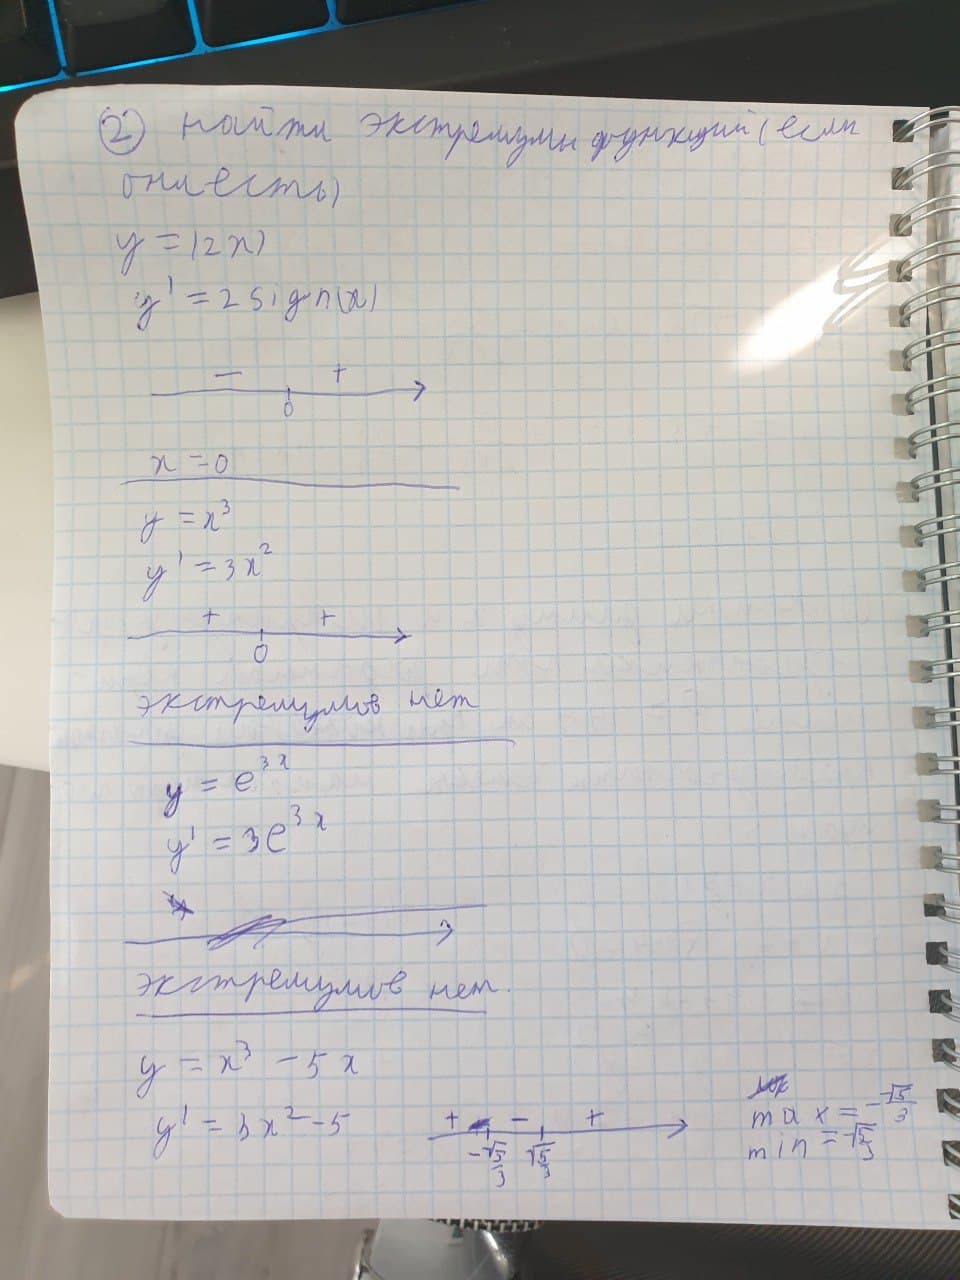 ② Найти экстремумы функций (если
они есть)
y = |2x|
y' = 2 sign(x)
− +
0
x = 0
y = x³
y' = 3x²
+ +
0
экстремумов нет
y = e³ˣ
y' = 3e³ˣ
экстремумов нет.
y = x³ − 5x
y' = 3x² − 5
+ − +
−√5/3 √5/3
max = −√5/3
min = √5/3